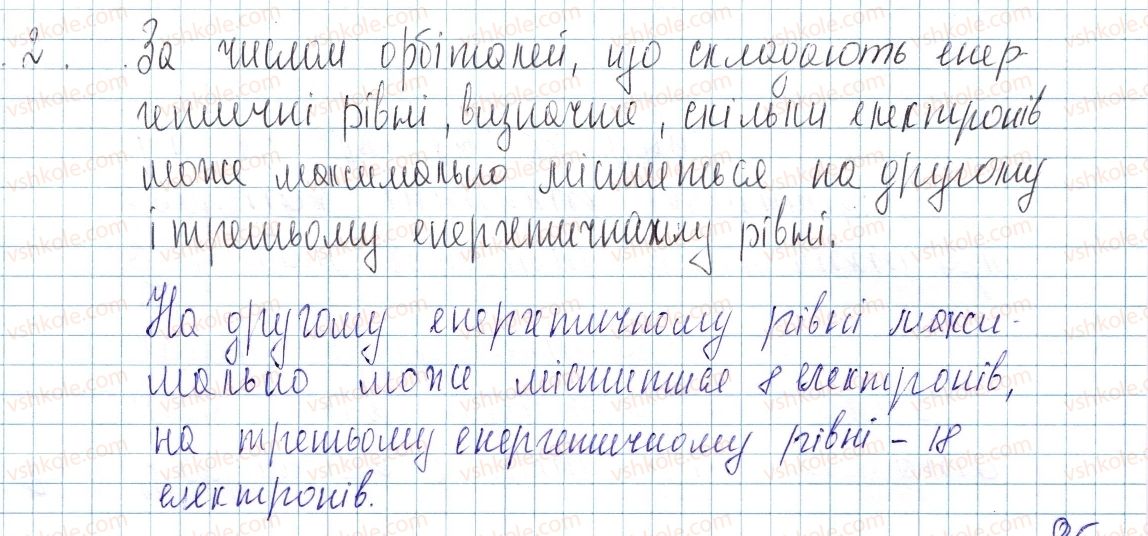 2. За числом орбіталей, що складають енер-
гетичні рівні, визначте, скільки електронів
може максимально міститься на другому
і третьому енергетичному рівні.
На другому енергетичному рівні макси-
мально може міститися 8 електронів,
на третьому енергетичному рівні - 18
електронів.